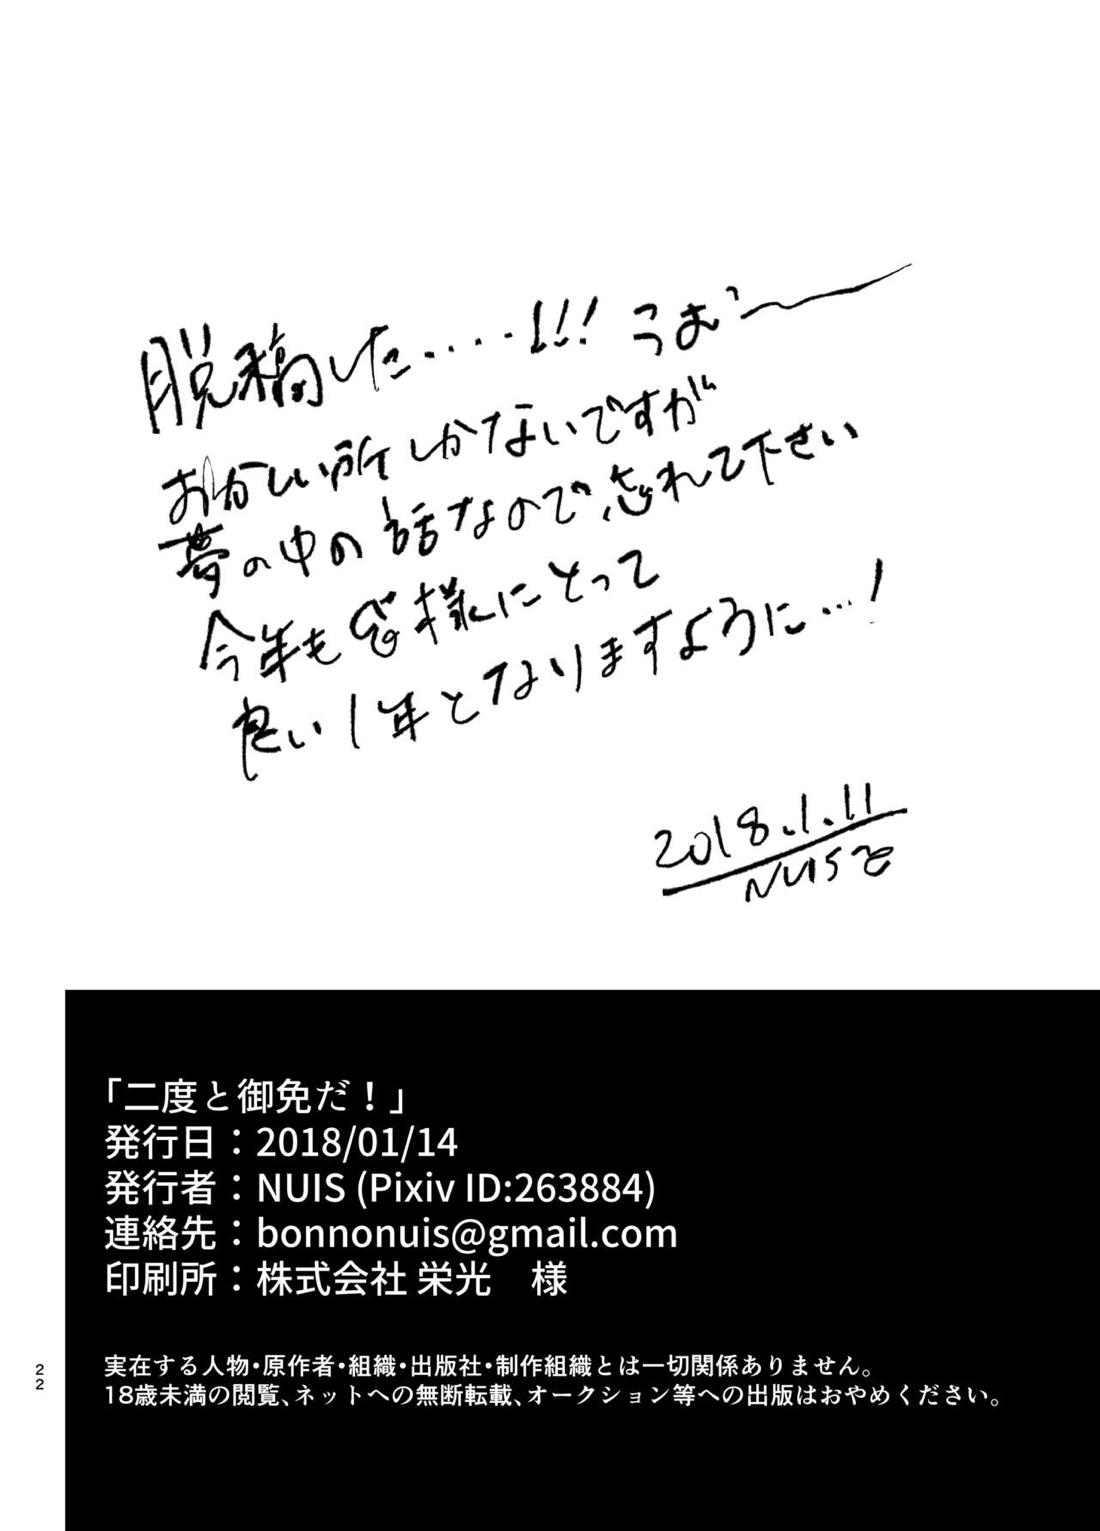 脱稿した‥‥!!! うおー
おかしい所しかないですが
夢の中の話なので忘れて下さい
今年も皆様にとって
良い1年となりますように…!
2018.1.11
NUIS
「二度と御免だ！」
発行日：2018/01/14
発行者：NUIS (Pixiv ID:263884)
連絡先：bonnonuis@gmail.com
印刷所：株式会社 栄光　様
実在する人物・原作者・組織・出版社・制作組織とは一切関係ありません。
18歳未満の閲覧、ネットへの無断転載、オークション等への出版はおやめください。
22